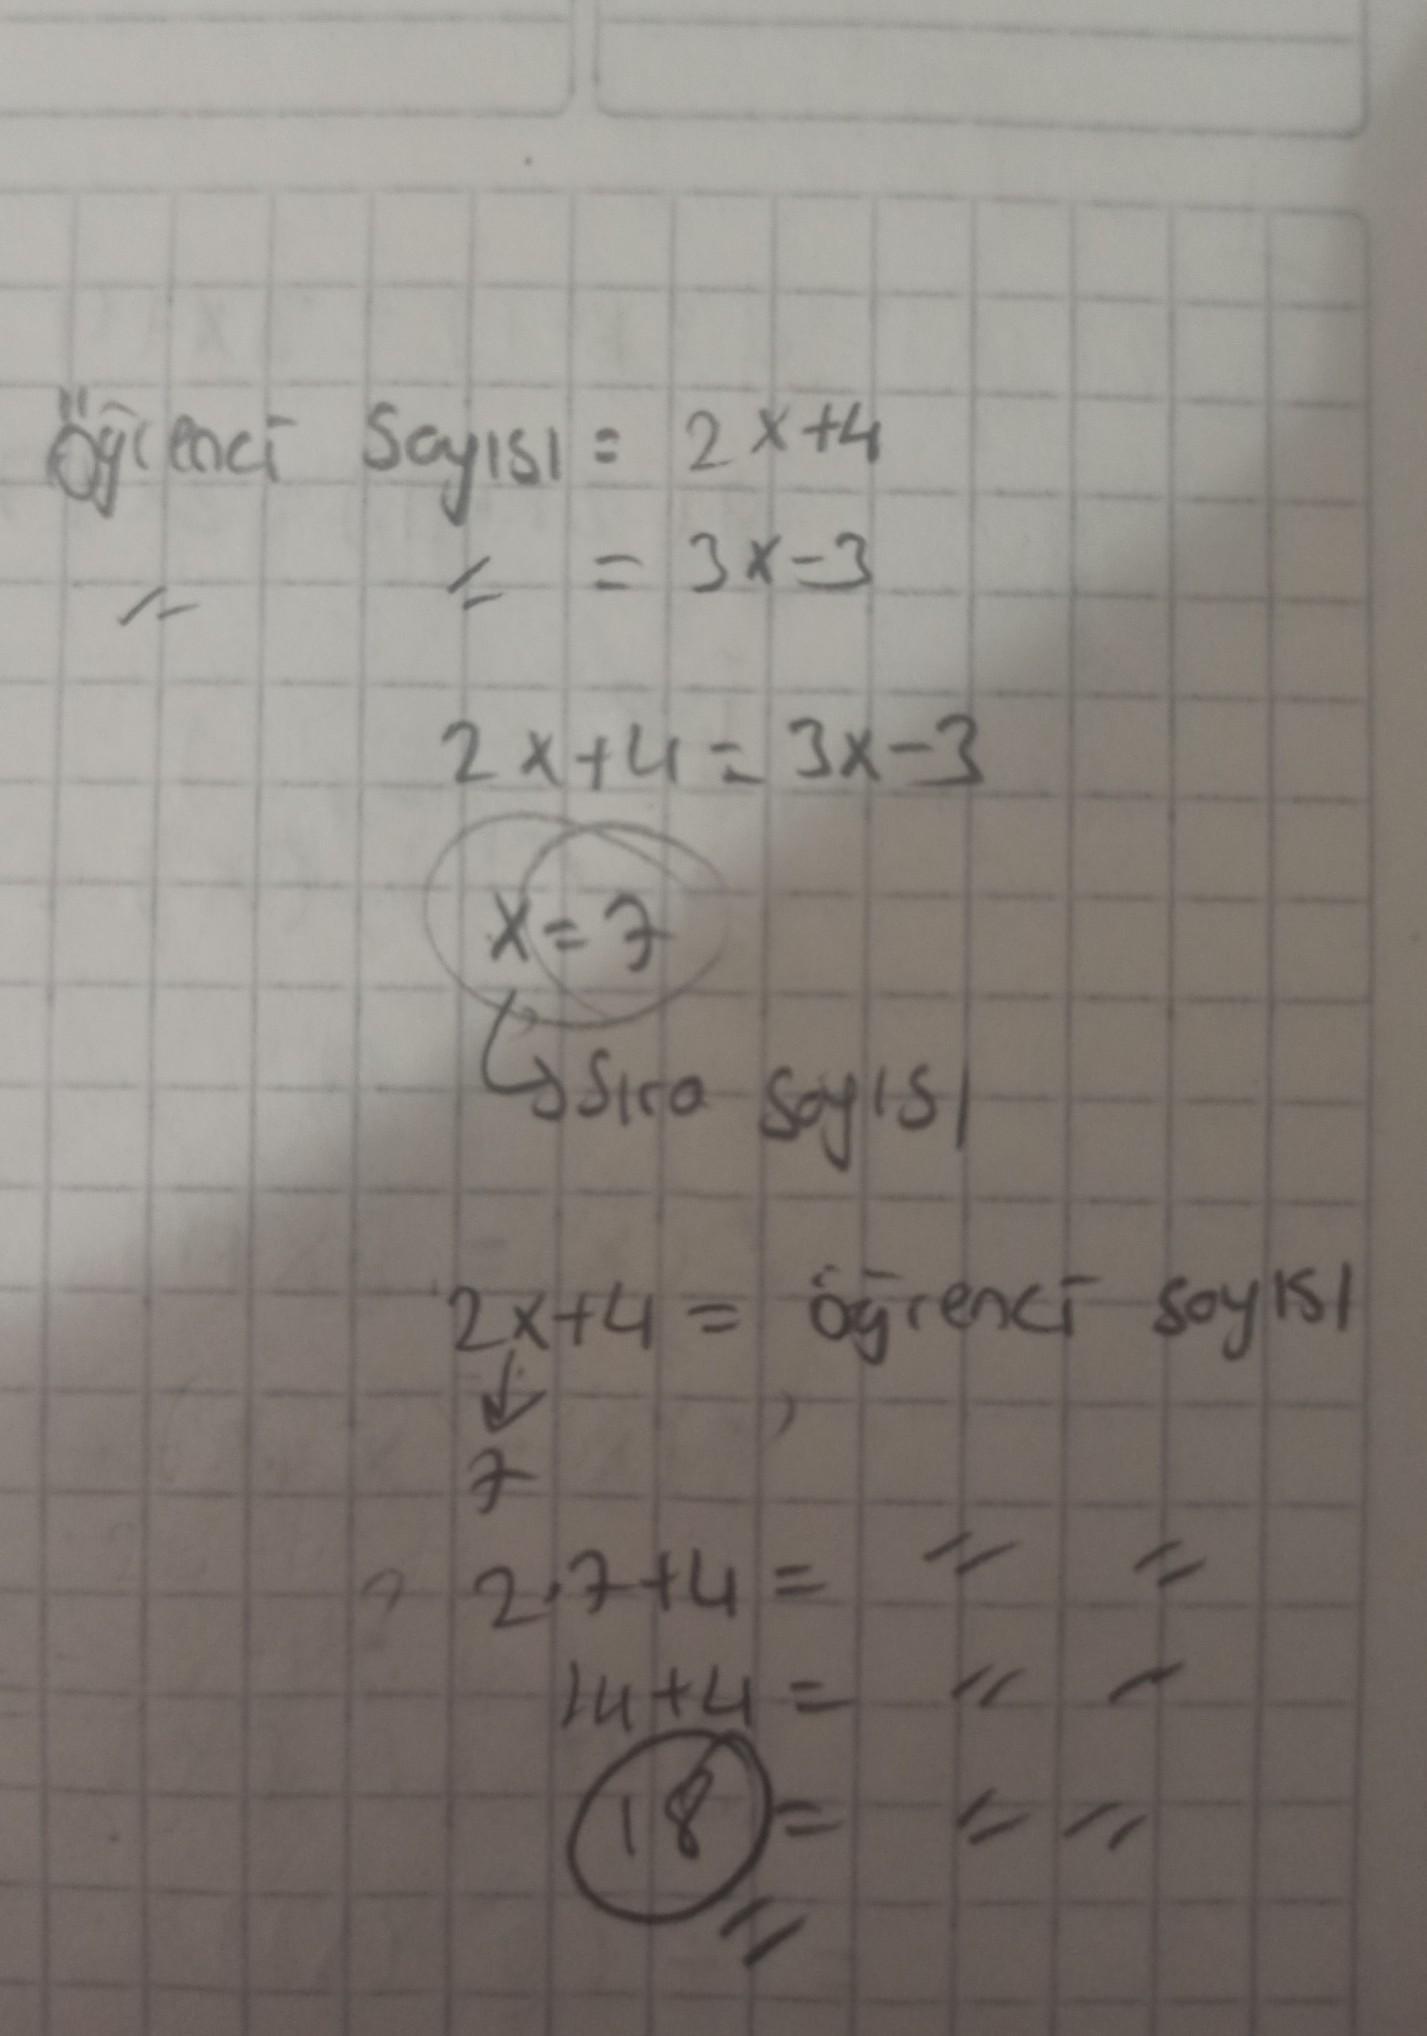 Öğrenci Sayısı = 2x+4
" " = 3x-3
2x+4 = 3x-3
x = 7
Sıra sayısı
2x+4 = öğrenci sayısı
7
2.7+4 = " "
14+4 = " "
18 = " "